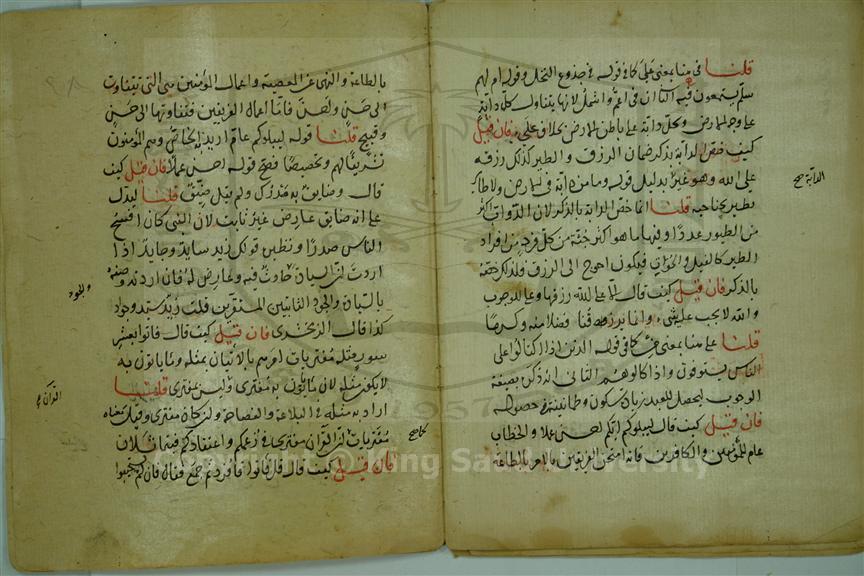 قلنا في هنا بمعنى على كما في قوله في جذوع النخل وقوله ام لهم
سلم يستمعون فيه الثاني ان في اعم واشمل لانها يتناول كل دابة
على وجه الارض وكل دابة على باطن الارض بخلاف على فان قيل
كيف خص الدابة بذكر ضمان الرزق والطير كذلك رزقه
على الله وهو غير بدليل قوله وما من دابة في الارض ولا طائر
يطير بجناحيه قلنا انما خص الدابة بالذكر لان الدواب اكثر
من الطيور عددا وفيها ما هو اكثر جثة من كل فرد من افراد
الطير كالفيل والحوت فيكون احوج الى الرزق فلذلك خصه
بالذكر فان قيل كيف قال الا على الله رزقها وعلى للوجوب
والله لا يجب عليه شيء وانما يرزق فضلا منه وكرما
قلنا على هنا بمعنى من كما في قوله الذين اذا اكتالوا على
الناس يستوفون واذا كالوهم الثاني انه ذكره بصيغة
الوجوب ليحصل للعبد زيادة سكون وطمانينة في حصوله
فان قيل كيف قال ليبلوكم ايكم احسن عملا والخطاب
عام للمؤمنين والكافرين فانه امتحن الفريقين بالامر بالطاعة
الدابة صح
بالطاعة والنهي عن المعصية واعمال المؤمنين هي التي تتفاوت
الى حسن واحسن فاما اعمال الفريقين فتفاوتها الى حسن
وقبيح قلنا قوله ليبلوكم عام اريد به الخاص وهم المؤمنون
تشريفا لهم وتخصيصا فصح قوله احسن عملا فان قيل كيف
قال وضايق به صدرك ولم يقل ضيق قلنا ليدل
على انه ضايق عارض غير ثابت لان النبي كان افسح
الناس صدرا ونظير قولك زيد سايد وجايد اذا
اردت ان السيادة حادث فيه وعارض له فان اردت وصفه
بالسيادة والجود الثابتين المستقرين قلت زيد سيد وجواد
كذا قال الزمخشري فان قيل كيف قال فاتوا بعشر
سور مثله مفتريات امرهم بالاتيان بمثله وما ياتون به
لا يكون مثله لان ما ياتون به مفترى وليس بمفترى قلنا
اراد به مثله في البلاغة والفصاحة وان كان مفترى وقيل معناه
مفتريات كما ان القران مفترى في زعمكم واعتقادكم فيتماثلان
فان قيل كيف قال قل فاتوا فافرد ثم جمع فقال فان لم يستجيبوا
والجود
القران
كما صح
Copyright © King Saud University
1957